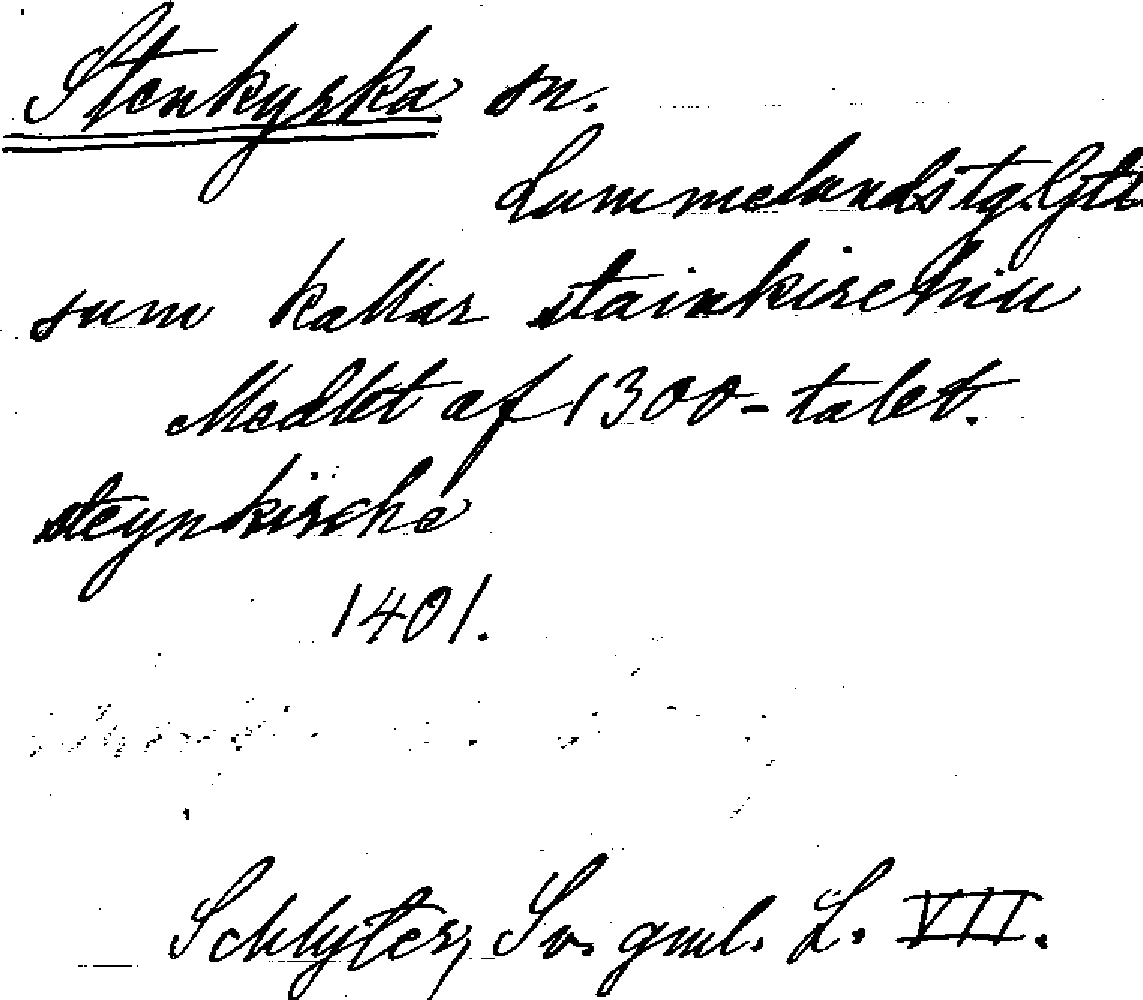 Stenkyrka sn.
Lummelundstg. Gtl.
sum kallar stainkirchiu
Medlet af 1300-talet.
steynkirche
1401.
Schlyter, Sv. gml. L. VII.